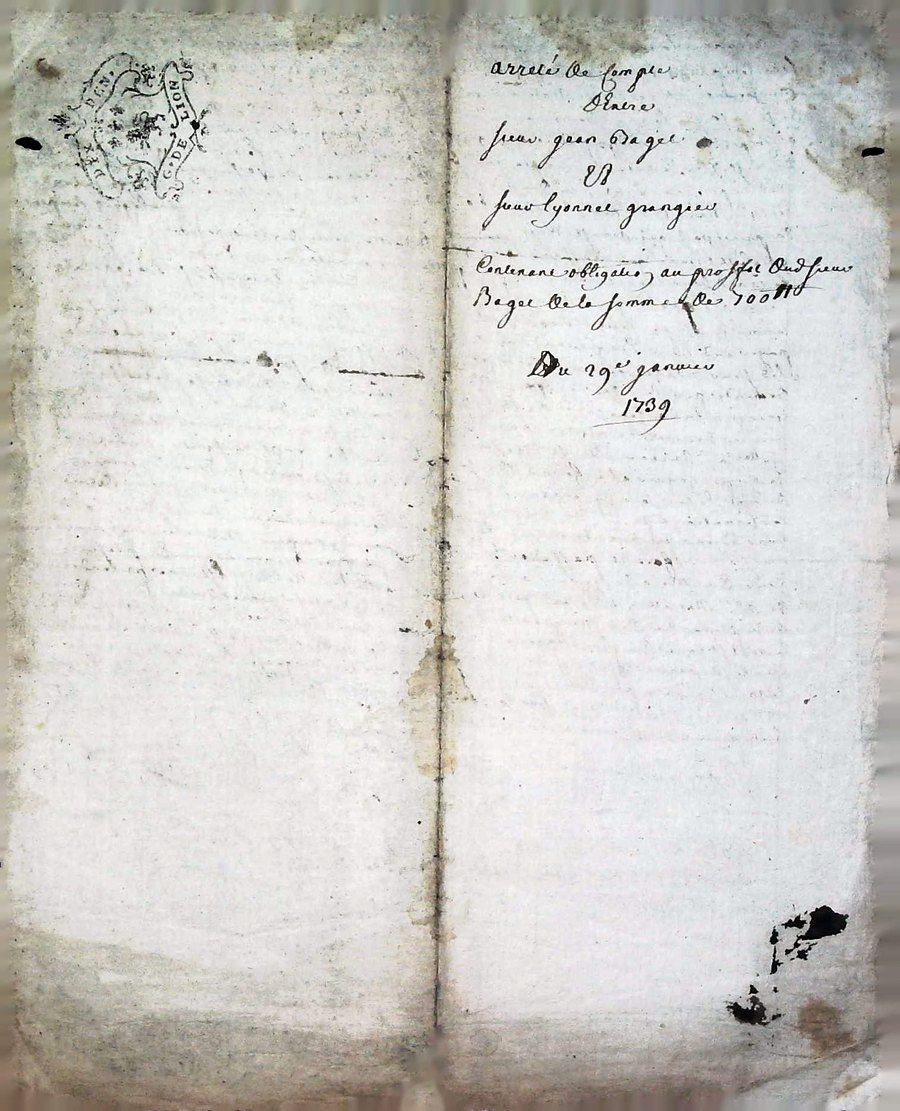 DIX DEN.
G. DE LION
arreté de Compte
dEntre
sieur jean Baget
Et
sieur lyonnet grangier
Contenant obligatio, au proffit dud sieur
Baget de la somme de 700tt
Du 29e janvier
1739